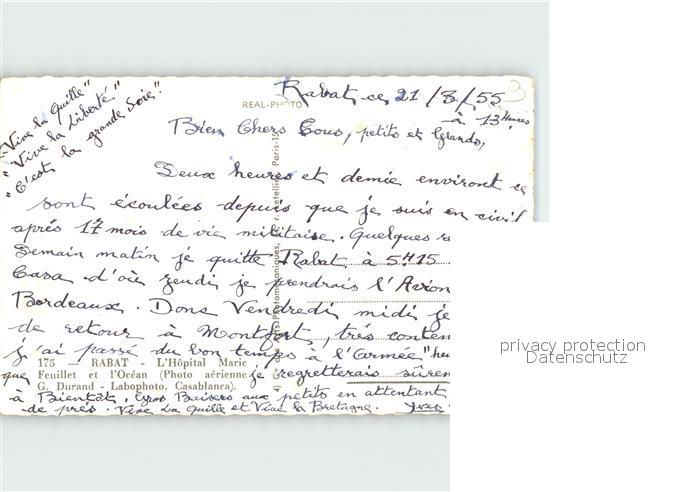 "Vive la Quille"
"Vive la Liberté"
"C'est la grande Joie"!
REAL-PHOTO
Rabat ce 21/8/55
à 13 Heures
Bien Chers Tous, petits et Grands,
Deux heures et demie environt se
sont écoulées depuis que je suis en civil
aprés 17 mois de vie militaise. Quelques
Demain matin je quitte Rabat à 5H15
Casa d'où jeudi je prendrais l'Avion
Bordeaux. Donc Vendredi midi je
de retour à Montfort, trés conten
j'ai passé du bon temps à l'Armée "heu
que je regretterais sûrem
175 — RABAT - L'Hôpital Marie
Feuillet et l'Océan (Photo aérienne
G. Durand - Labophoto, Casablanca).
à Bientôt, Gros Baisers aux petits en attentant
de prés. Vive La Quille et Vive la Bretagne. Yves
privacy protection
Datenschutz